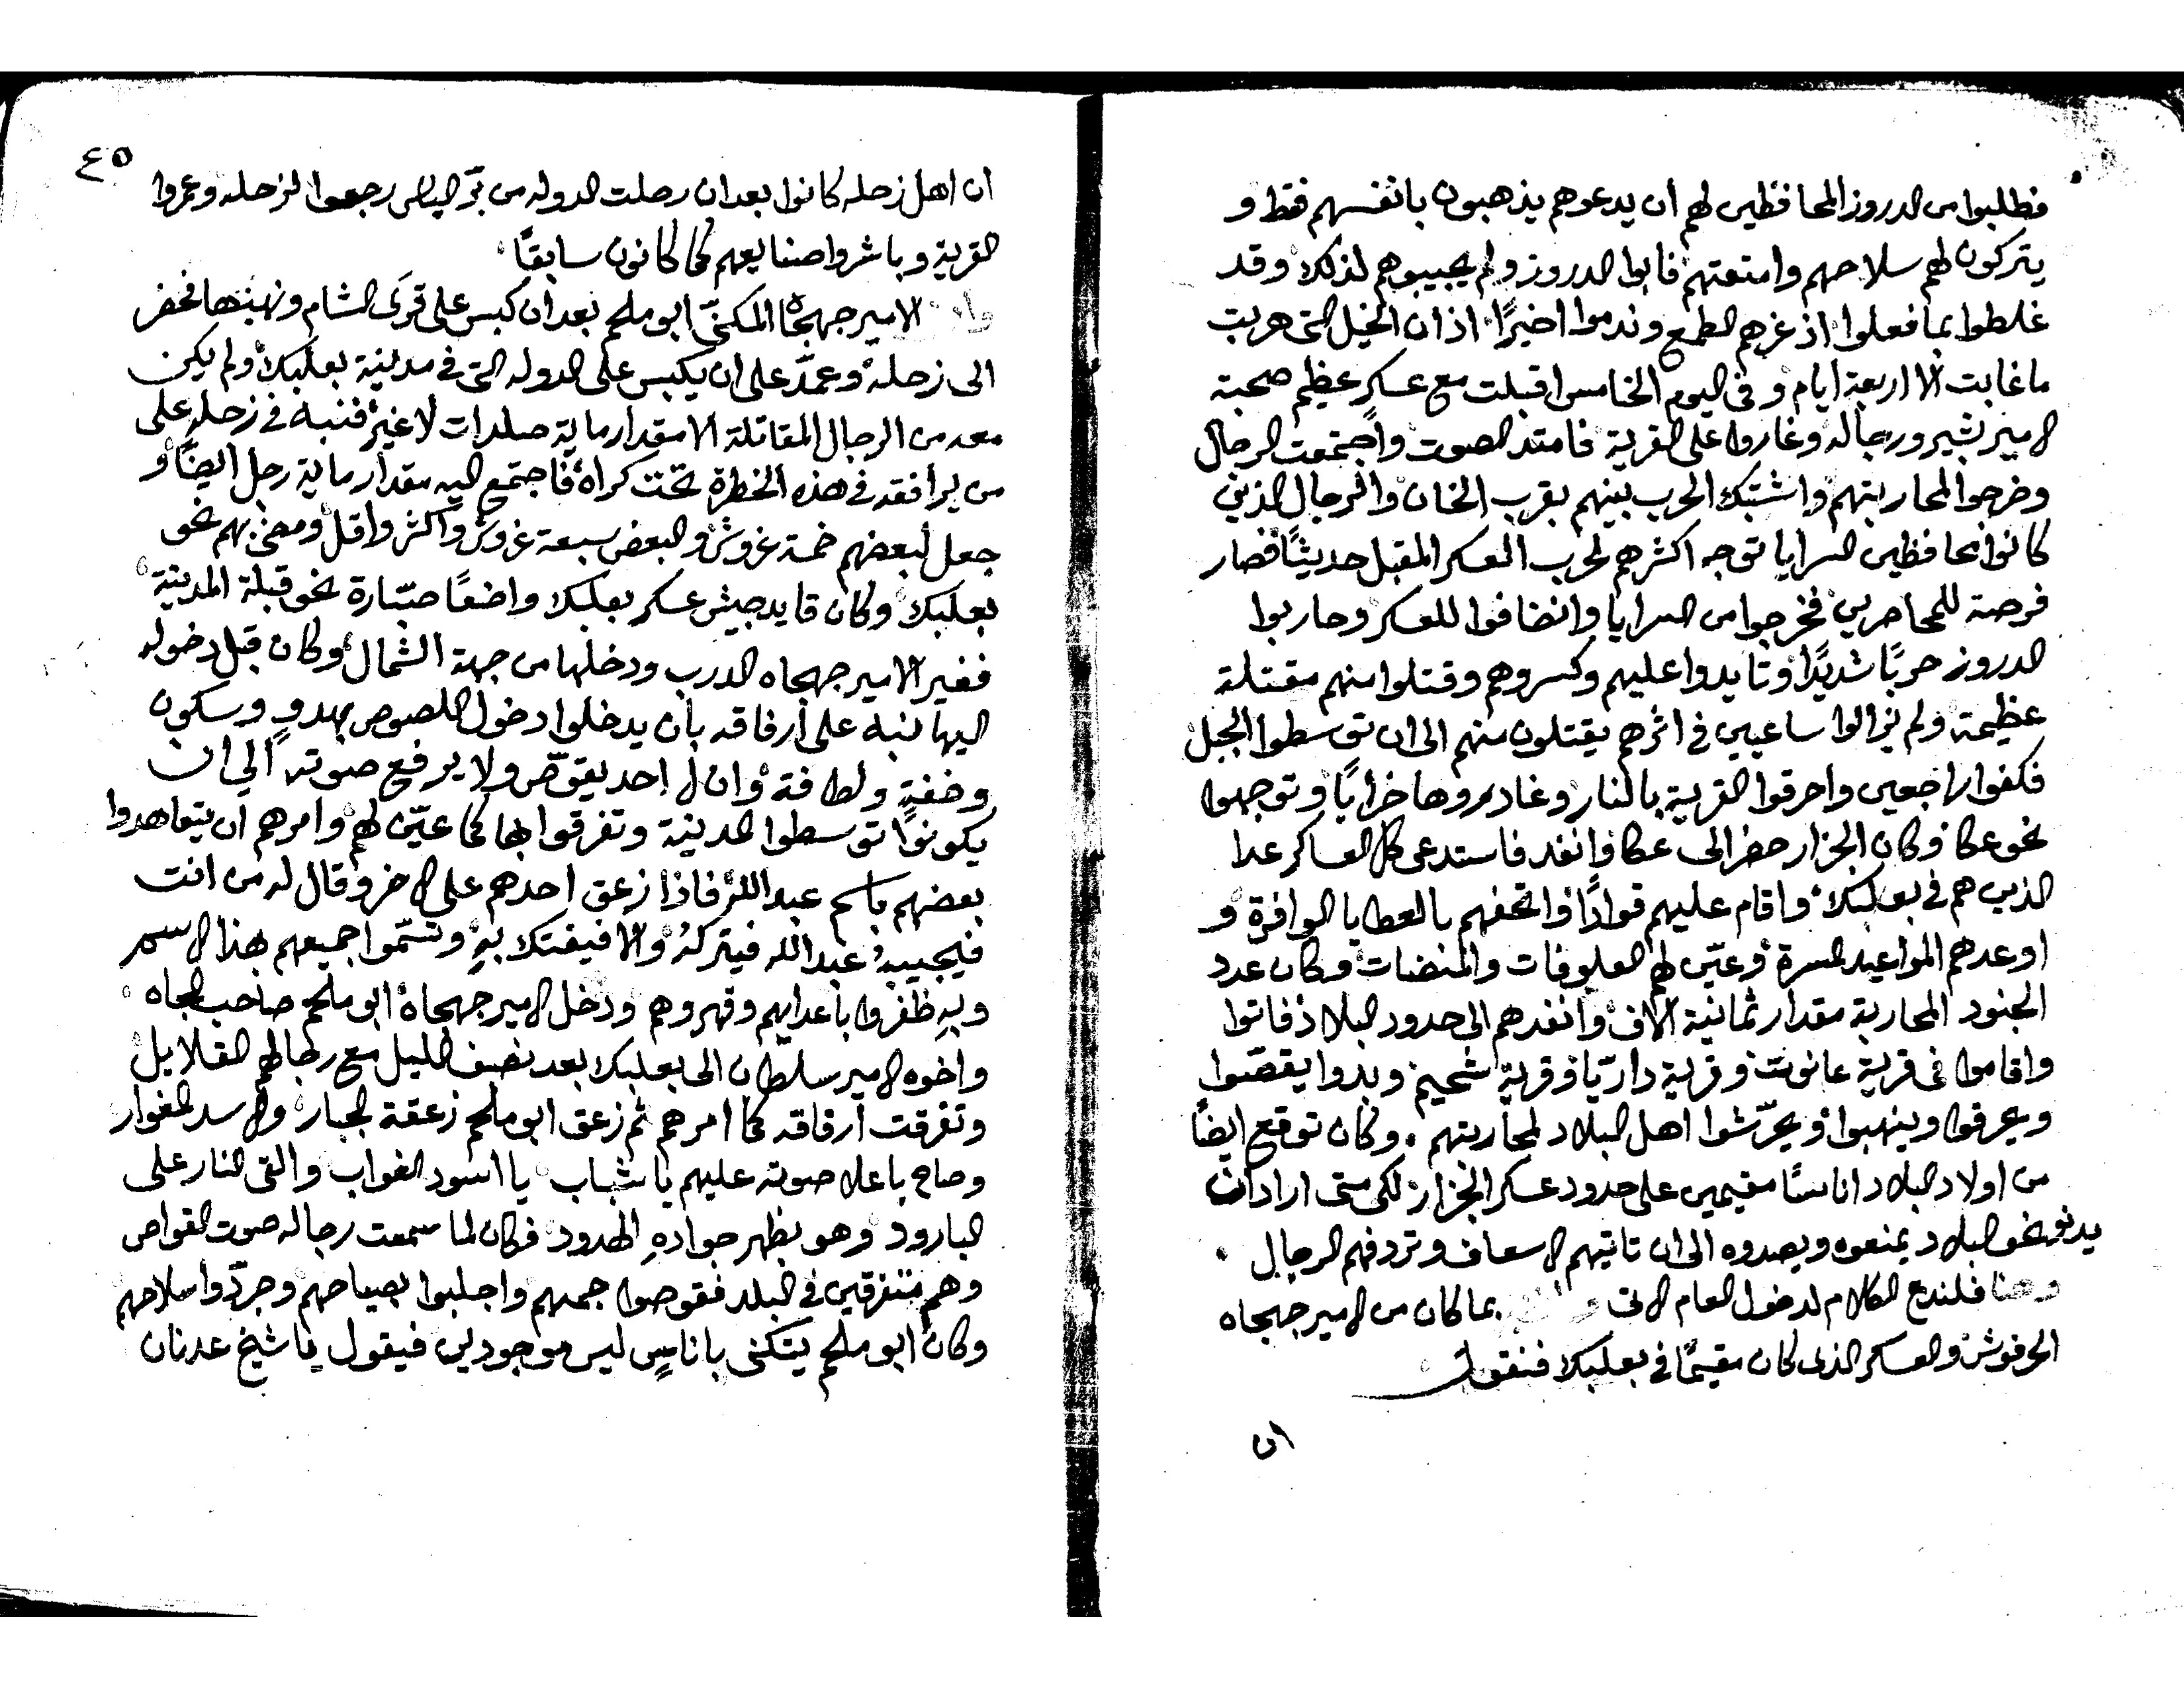 فطلبوا من الدروز المحافظين لهم ان يدعوهم يذهبون بانفسهم فقط و
يتركون لهم سلاحهم وامتعتهم فابوا الدروز ولم يجيبوهم لذلك وقد
غلطوا بما فعلوا اذ غرهم الطمع وندموا اخيرًا اذ ان الخيل التي هربت
ما غابت الا اربعة ايام وفي اليوم الخامس اقبلت مع عسكر عظيم صحبة
الامير بشير ورجاله وغاروا على القرية فامتد الصوت واجتمعت الرجال
وخرجوا لمحاربتهم واشتبك الحرب بينهم بقرب الخان والرجال الذين
كانوا محافظين السرايا توجه اكثرهم لحرب العسكر المقبل حديثًا فصار
فرصة للمحاصرين فخرجوا من السرايا وانضافوا للعسكر وحاربوا
الدروز حربًا شديدًا وتايدوا عليهم وكسروهم وقتلوا منهم مقتلة
عظيمة ولم يزالوا ساعيين في اثرهم يقتلون منهم الى ان توسطوا الجبل
فكفوا راجعين واحرقوا القرية بالنار وغادروها خرابًا وتوجهوا
نحو عكا وكان الجزار حضر الى عكا وانفد فاستدعى كل العساكر عدا
الذين هم في بعلبك واقام عليهم قوادًا واتحفهم بالعطايا الوافرة و
اوعدهم المواعيد المسرة وعيّن لهم العلوفات والمنضات وكان عدد
الجنود المحاربة مقدار ثمانية الاف وانفدهم الى حدود البلاد فاتوا
واقاموا في قرية عانوت وقرية داريّا وقرية شحيم وبدوا يقصّوا
ويحرقوا وينهبوا ويحرّشوا اهل البلاد لمحاربتهم . وكان توقع ايضًا
من اولاد البلاد اناسًا مقيمين على حدود عسكر الجزار لكي متى اراد ان
يدنو نحو البلاد يمنعوه ويصدوه الى ان تاتيهم الاسعاف وتردفهم الرجال
وهنا فلندع الكلام لدخول العام الاتي بما كان من الامير جهجاه
الحرفوش والعسكر الذي كان مقيمًا في بعلبك فنقول
ان
٤٥
ان اهل زحله كانوا بعد ان رحلت الدوله من برّ الياس رجعوا لزحله وعمروا
القرية وباشروا صنايعهم كما كانون سابقًا
الامير جهجاة المكنّى ابو ملحم بعد ان كبس على قرى الشام ونهبها فحضر
الى زحلة وعمدّ على ان يكبس على الدوله التي في مدينة بعلبك ولم يكن
معه من الرجال المقاتلة الا مقدار ماية صلدات لا غير فنبه في زحله على
من يرافقه في هذه الخطرة تحت كراه فاجتمع اليه مقدار ماية رجل ايضًا و
جعل لبعضهم خمسة غروش والبعض سبعة غروش واكثر واقل ومضى بهم نحو
بعلبك وكان قايد جيش عسكر بعلبك واضعًا صبّارة نحو قبلة المدينة
فغير الامير جهجاه الدرب ودخلها من جهة الشمال وكان قبل دخوله
اليها نبه على ارفاقه بان يدخلوا دخول اللصوص بهدوٍ وسكون
وخفةٍ ولطافة وان لا احد يقوّص ولا يرفع صوته الى ان
يكونوا توسطوا المدينة وتفرقوا بها كما عيّن لهم وامرهم ان يتعاهدوا
بعضهم باسم عبد الله فاذا زعق احدهم على الاخر وقال له من انت
فيجيبه عبد الله فيتركه والا فيفتك بهِ وتسمّوا جميعهم بهذا الاسم
وبهِ ظفروا باعدايهم وقهروهم ودخل الامير جهجاة ابو ملحم صاحب الجاه
واخوه الامير سلطان الى بعلبك بعد نصف الليل مع رجالهم القلايل
وتفرقت ارفاقه كما امرهم ثم زعق ابو ملحم زعقة الجبار والاسد المغوار
وصاح باعلا صوته عليهم يا شباب يا اسود الغواب والقى النار على
البارود وهو بظهر جوادهِ الهدود فكان لما سمعت رجاله صوت القواص
وهم متفرقين في البلد فقوصوا جمعهم واجلبوا بصياحهم وجردّوا سلاحهم
وكان ابو ملحم يتكنى باناسٍ ليس موجودين فيقول يا شيخ عدنان